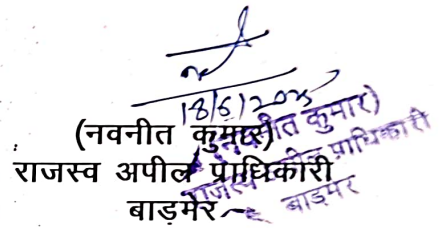 18/6/2025
(नवनीत कुमार)
राजस्व अपील प्राधिकारी
बाड़मेर
(नवनीत कुमार)
राजस्व अपील प्राधिकारी
बाड़मेर